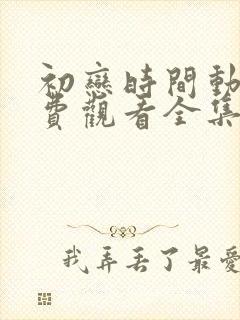 初戀時間動
費觀看全集
我弄丟了最愛